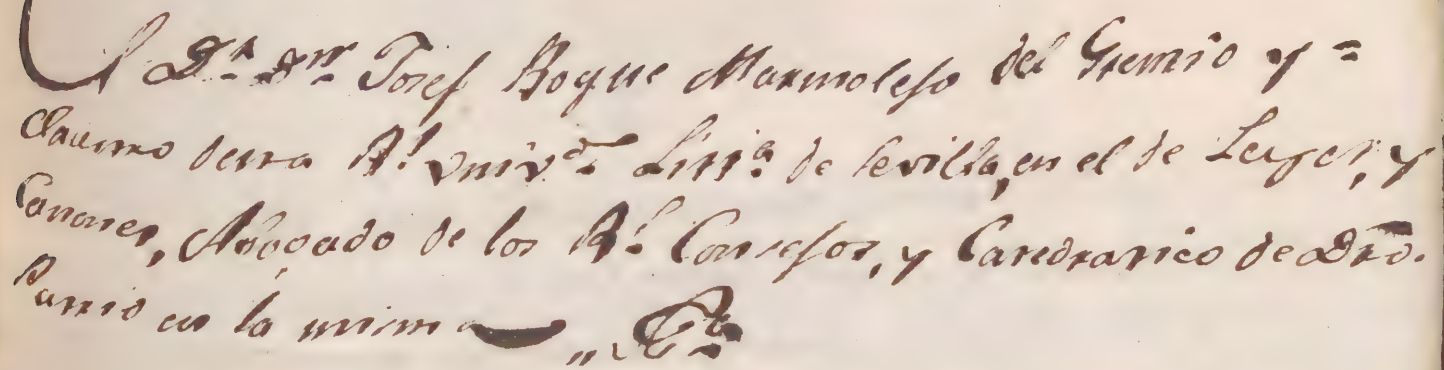 El Dr. Dn. Josef Roque Marmolejo del Gremio y =
Claustro de esta Rl. Univd. Litria. de Sevilla, en el de Leyes, y
Canones, Abogado de los Rs. Consejos, y Catedratico de Dro.
Patrio en la misma „ Ca.